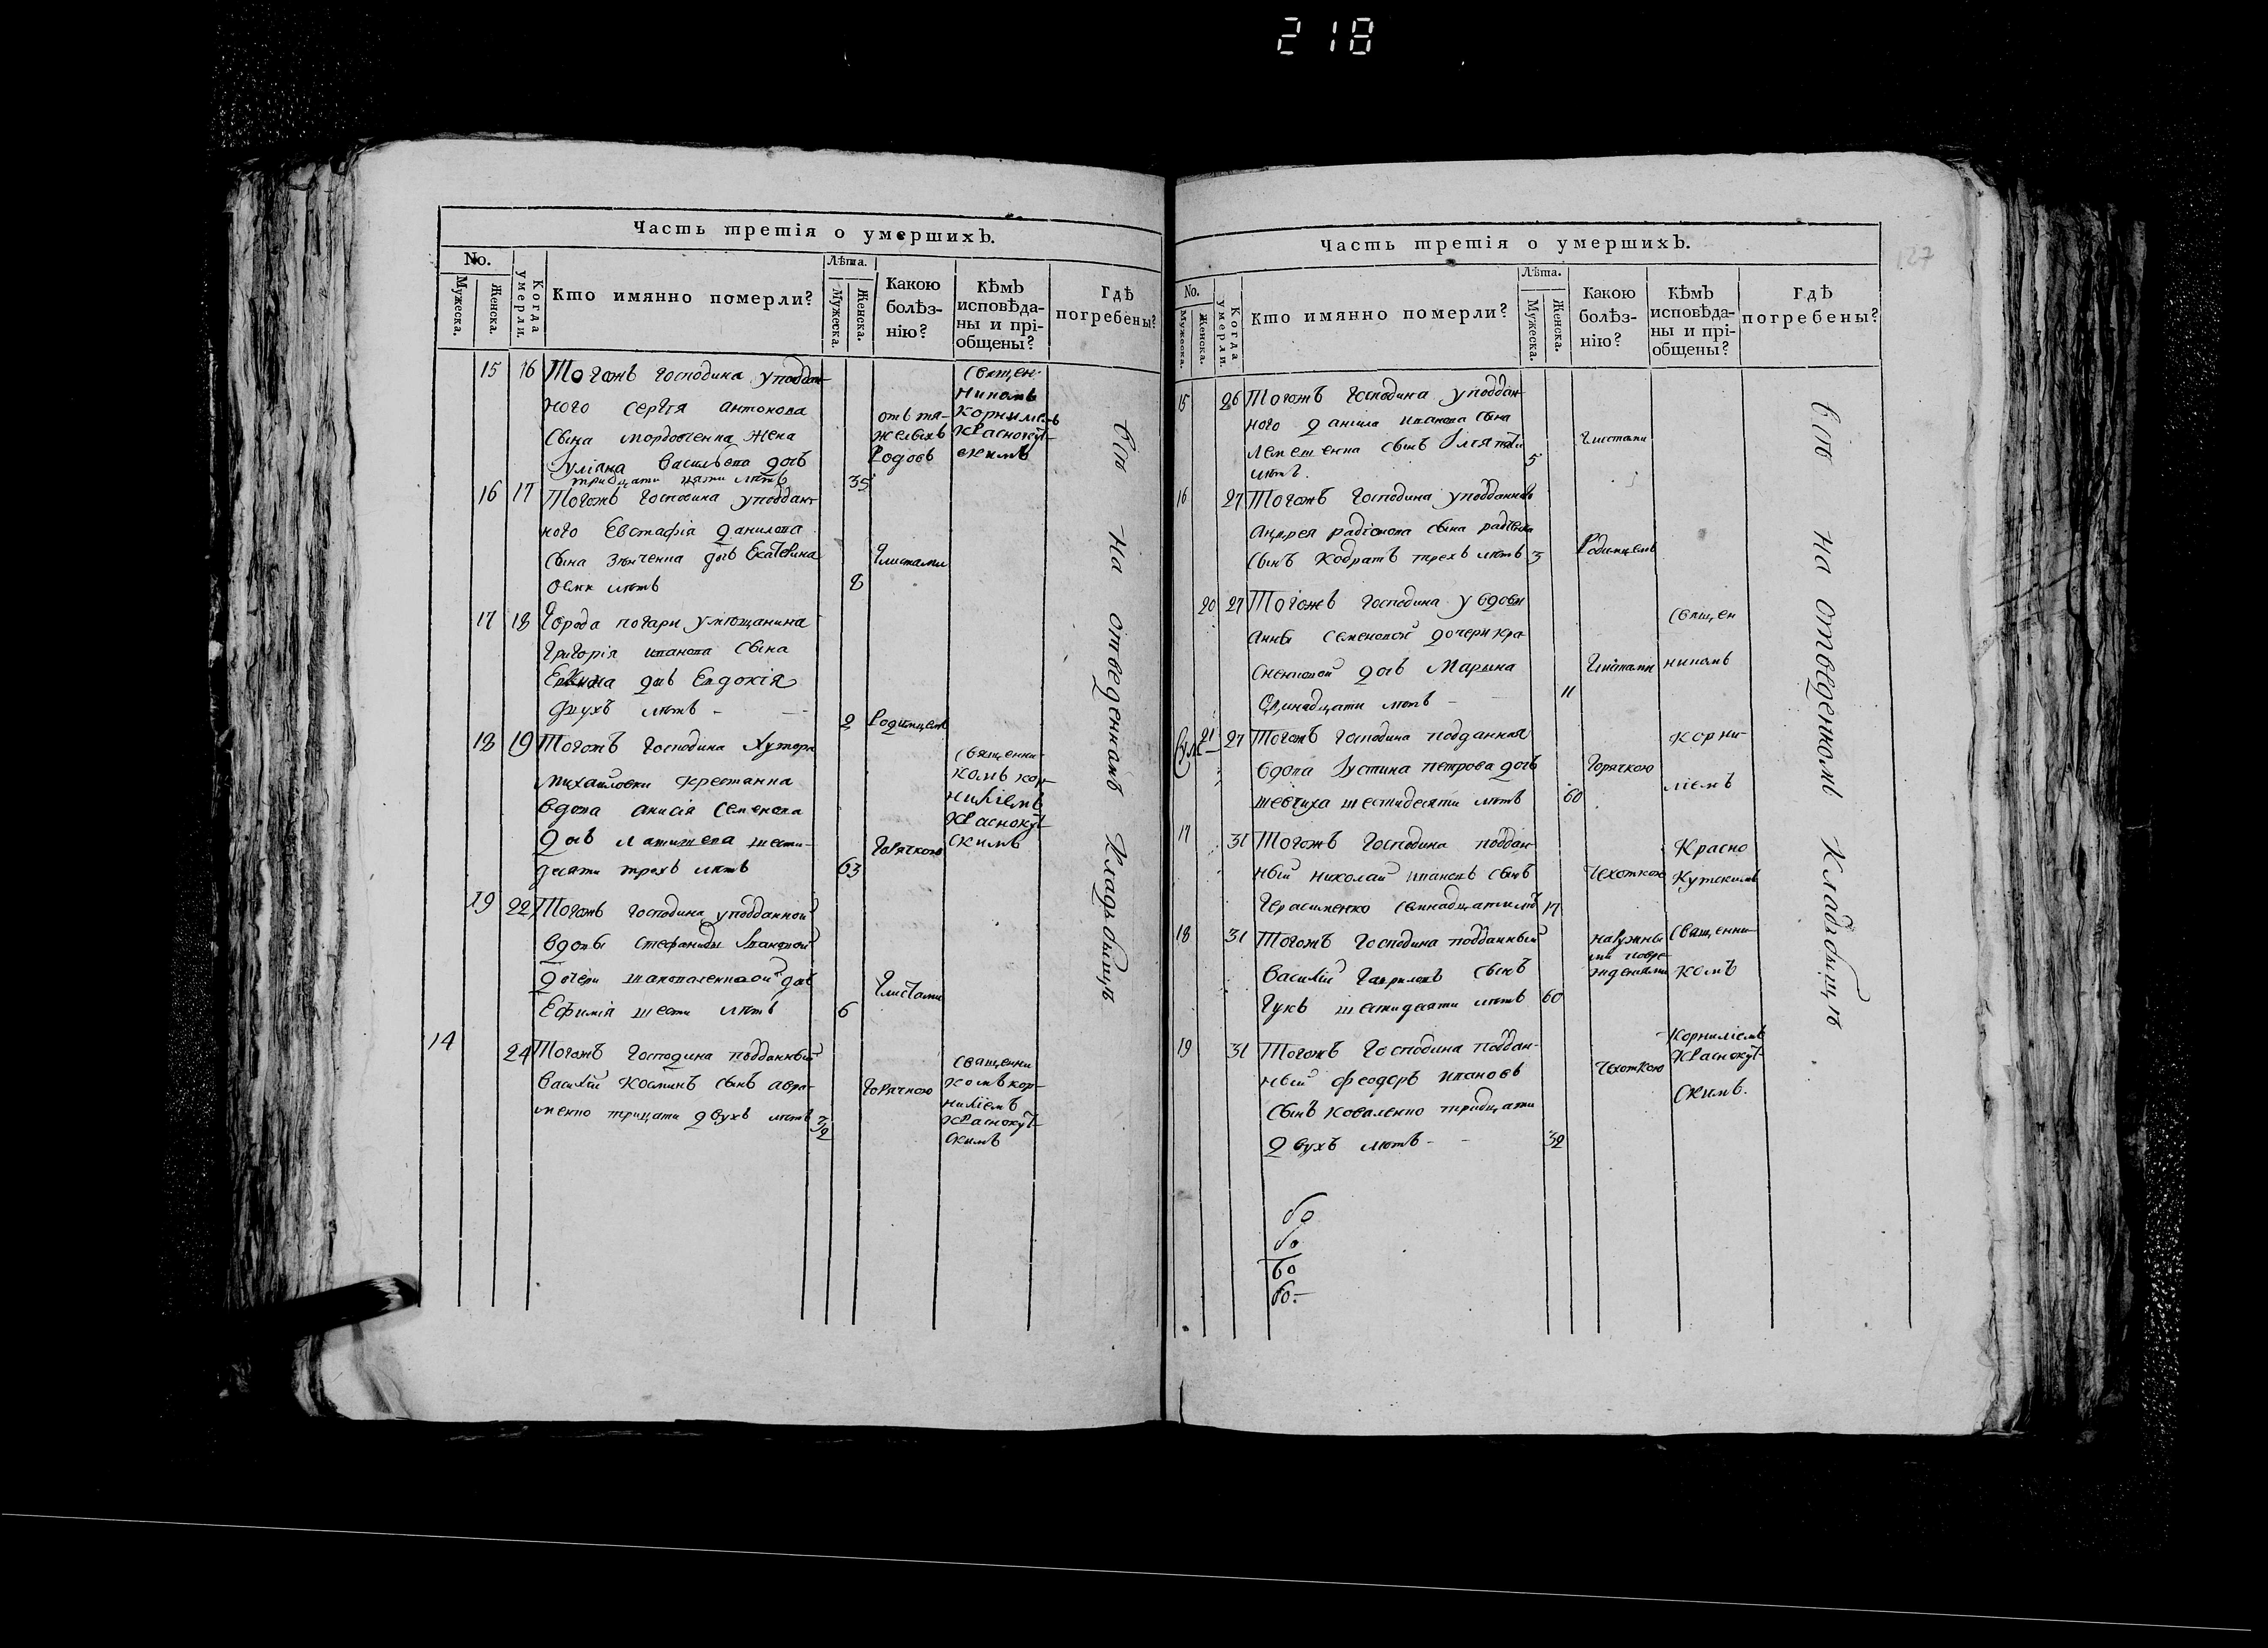 218
Часть третія о умершихъ.
No.
Мужеска.
Женска.
Когда умерли.
Кто имянно померли?
Лѣта.
Мужеска.
Женска.
Какою болѣз-
нію?
Кѣмъ
исповѣда-
ны и прі-
общены?
Гдѣ
погребены?
15 16 Тогожъ господина уподдан-
ного сергія антонова
сына мордовченка жена
Іуліана васильева дочь
тридцати пяти лѣтъ 35
отъ тя-
желыхъ
родовъ
священ-
никомъ
корниліемъ
краснокут-
скимъ
16 17 Тогожъ господина уподдан-
ного Евстафія данилова
сына дочь Екатерина
осми лѣтъ 8
глистами
17 18 города погари умющанина
григорія иванова сына
дочь Евдокія
двухъ лѣтъ - 2 родимцемъ
18 19 Тогожъ господина хутора
михайловки крестянка
вдова анисія семенова
дочь шести-
десяти трехъ лѣтъ 63
горячкою
священни-
комъ кор-
ниліемъ
краснокут-
скимъ
19 22 Тогожъ господина уподданной
вдовы стефаниды Ивановой
дочери шаповаленковой дочь
Ефимія шести лѣтъ 6
глистами
14 24 Тогожъ господина подданный
василій косминъ сынъ авра-
менко трицати двухъ лѣтъ 32
горячкою
священни
комъ кор-
ниліемъ
краснокут-
скимъ
всѣ на отведенномъ кладьбищѣ
127
Часть третія о умершихъ.
No.
Мужеска.
Женска.
Когда умерли.
Кто имянно померли?
Лѣта.
Мужеска.
Женска.
Какою
болѣз-
нію?
Кѣмъ
исповѣда-
ны и прі-
общены?
Гдѣ
погребены?
15 26 Тогожъ господина уподдан-
ного даніила иванова сына
лемешенка сынъ Ілія пяти
лѣтъ. 5
глистами
16 27 Тогожъ господина уподданного
андрея радіонова сына
сынъ кодратъ трехъ лѣтъ 3
родимцемъ
20 27 Тогожъ господина у вдовы
анны семеновой дочери кра-
сненковой дочь Марына
одинадцати лѣтъ - 11
глистами
священ
никомъ
21 27 Тогожъ господина подданная
вдова Іустина петрова дочь
шевчиха шестидесяти лѣтъ 60
горячкою
корни-
ліемъ
17 31 Тогожъ господина поддан-
ный николай ивановъ сынъ
герасименко семнадцати лѣтъ 17
чехоткою
Красно
кутскимъ
18 31 Тогожъ господина подданный
василій гавриловъ сынъ
гукъ шестидесяти лѣтъ 60
наружны
ми повре-
жденіями
священни-
комъ
19 31 Тогожъ господина поддан-
ный феодоръ ивановъ
сынъ коваленко тридцати
двухъ лѣтъ - - 32
чехоткою
Корниліемъ
краснокут-
скимъ.
всѣ на отведенномъ кладбищѣ
бо
бо
бо
бо.-